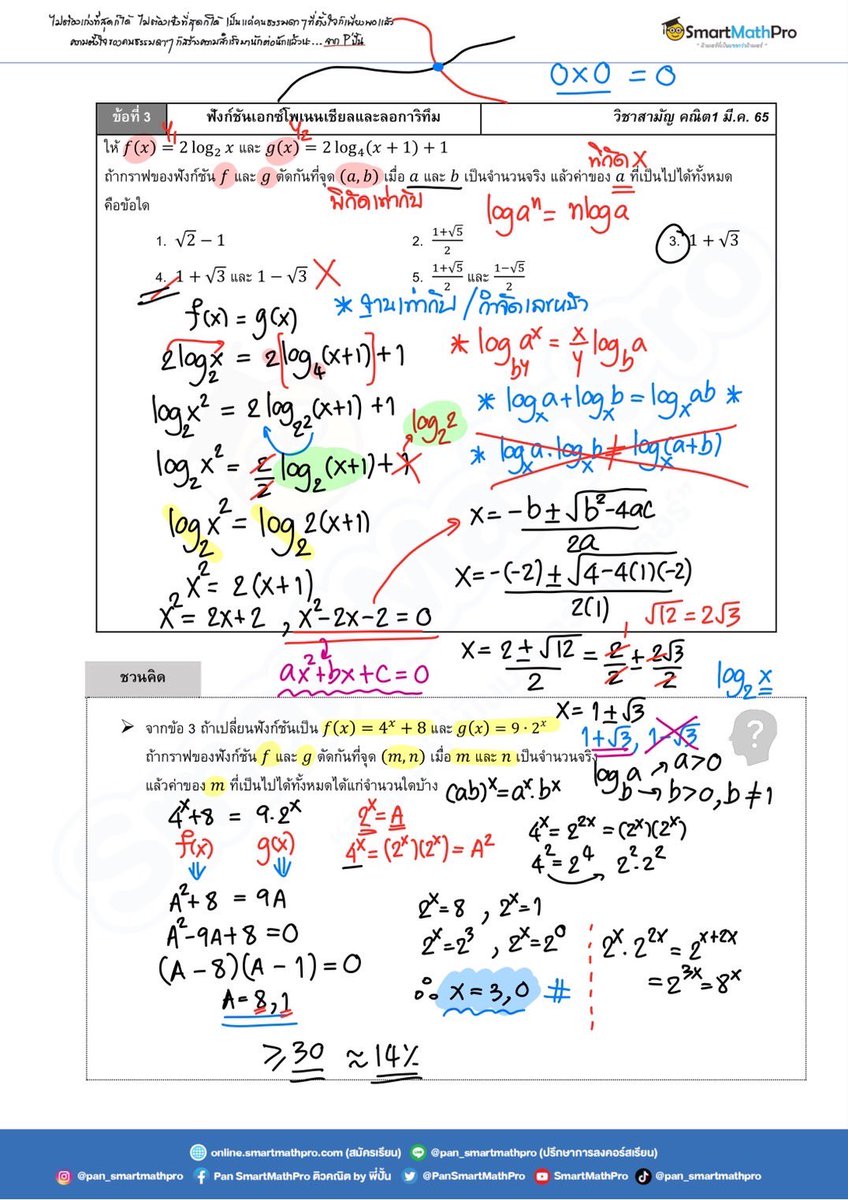 ไม่ต้องเก่งที่สุดก็ได้ ไม่ต้องเจ๋งที่สุดก็ได้ เป็นแค่คนธรรมดาๆ ที่ตั้งใจก็เพียงพอแล้ว
ความตั้งใจของคนธรรมดาๆ ก็สร้างความสำเร็จมานักต่อนักแล้วนะ... จาก Pปั้น
SmartMathPro
0×0 = 0
ข้อที่ 3 ฟังก์ชันเอกซ์โพเนนเชียลและลอการิทึม วิชาสามัญ คณิต1 มี.ค. 65
y₁ y₂
ให้ f(x) = 2 log₂ x และ g(x) = 2 log₄(x + 1) + 1
พิกัด x
ถ้ากราฟของฟังก์ชัน f และ g ตัดกันที่จุด (a, b) เมื่อ a และ b เป็นจำนวนจริง แล้วค่าของ a ที่เป็นไปได้ทั้งหมด
พิกัดเท่ากัน
คือข้อใด
log aⁿ = n log a
1. √2 − 1 2. (1+√5)/2 3. 1 + √3
4. 1 + √3 และ 1 − √3 5. (1+√5)/2 และ (1−√5)/2
f(x) = g(x) * ฐานเท่ากัน / กำจัดเลขหน้า
2 log₂ x = 2[log₄(x+1)] + 1 * log_{b^y} a^x = x/y log_b a
log₂ x² = 2 log_{2²}(x+1) + 1 * logₓ a + logₓ b = logₓ ab *
log₂ 2
log₂ x² = 2/2 log₂(x+1) + 1 * logₓ a · logₓ b ≠ logₓ(a+b)
log₂ x² = log₂ 2(x+1) x = (−b ± √(b²−4ac))/2a
x² = 2(x+1) x = (−(−2) ± √(4−4(1)(−2)))/2(1)
x² = 2x+2 , x²−2x−2 = 0 √12 = 2√3
ax²+bx+c = 0 x = (2 ± √12)/2 = 2/2 ± 2√3/2
log₂ x
ชวนคิด
x = 1 ± √3
1+√3, 1−√3
จากข้อ 3 ถ้าเปลี่ยนฟังก์ชันเป็น f(x) = 4ˣ + 8 และ g(x) = 9 · 2ˣ
ถ้ากราฟของฟังก์ชัน f และ g ตัดกันที่จุด (m, n) เมื่อ m และ n เป็นจำนวนจริง
แล้วค่าของ m ที่เป็นไปได้ทั้งหมดได้แก่จำนวนใดบ้าง
log_b a → a>0
→ b>0, b≠1
(ab)ˣ = aˣ·bˣ
4ˣ+8 = 9·2ˣ 2ˣ = A 4ˣ = 2²ˣ = (2ˣ)(2ˣ)
f(x) g(x) 4ˣ = (2ˣ)(2ˣ) = A² 4² = 2⁴ 2²·2²
A²+8 = 9A 2ˣ=8 , 2ˣ=1
A²−9A+8 = 0 2ˣ=2³ , 2ˣ=2⁰ 2ˣ·2²ˣ = 2ˣ⁺²ˣ
(A−8)(A−1) = 0 ∴ x = 3, 0 # = 2³ˣ = 8ˣ
A = 8, 1
≥ 30 ≈ 14%
online.smartmathpro.com (สมัครเรียน) @pan_smartmathpro (ปรึกษาการลงคอร์สเรียน)
@pan_smartmathpro Pan SmartMathPro ติวคณิต by พี่ปั้น @PanSmartMathPro SmartMathPro @pan_smartmathpro